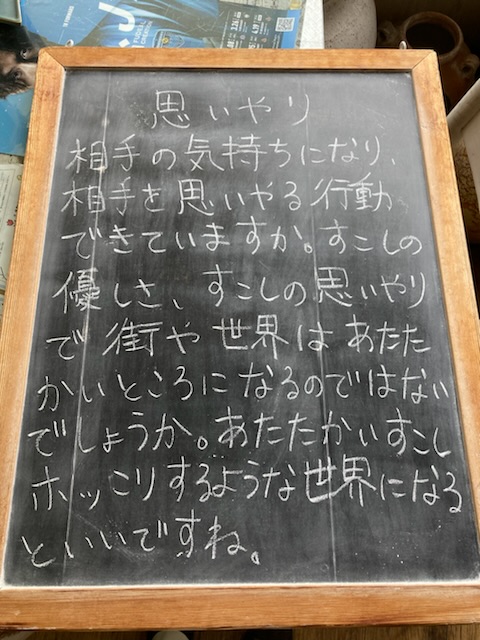 思いやり
相手の気持ちになり、
相手を思いやる行動
できていますか。すこしの
優しさ、すこしの思いやり
で街や世界はあたた
かいところになるのではない
でしょうか。あたたかいすこし
ホッこりするような世界になる
といいですね。